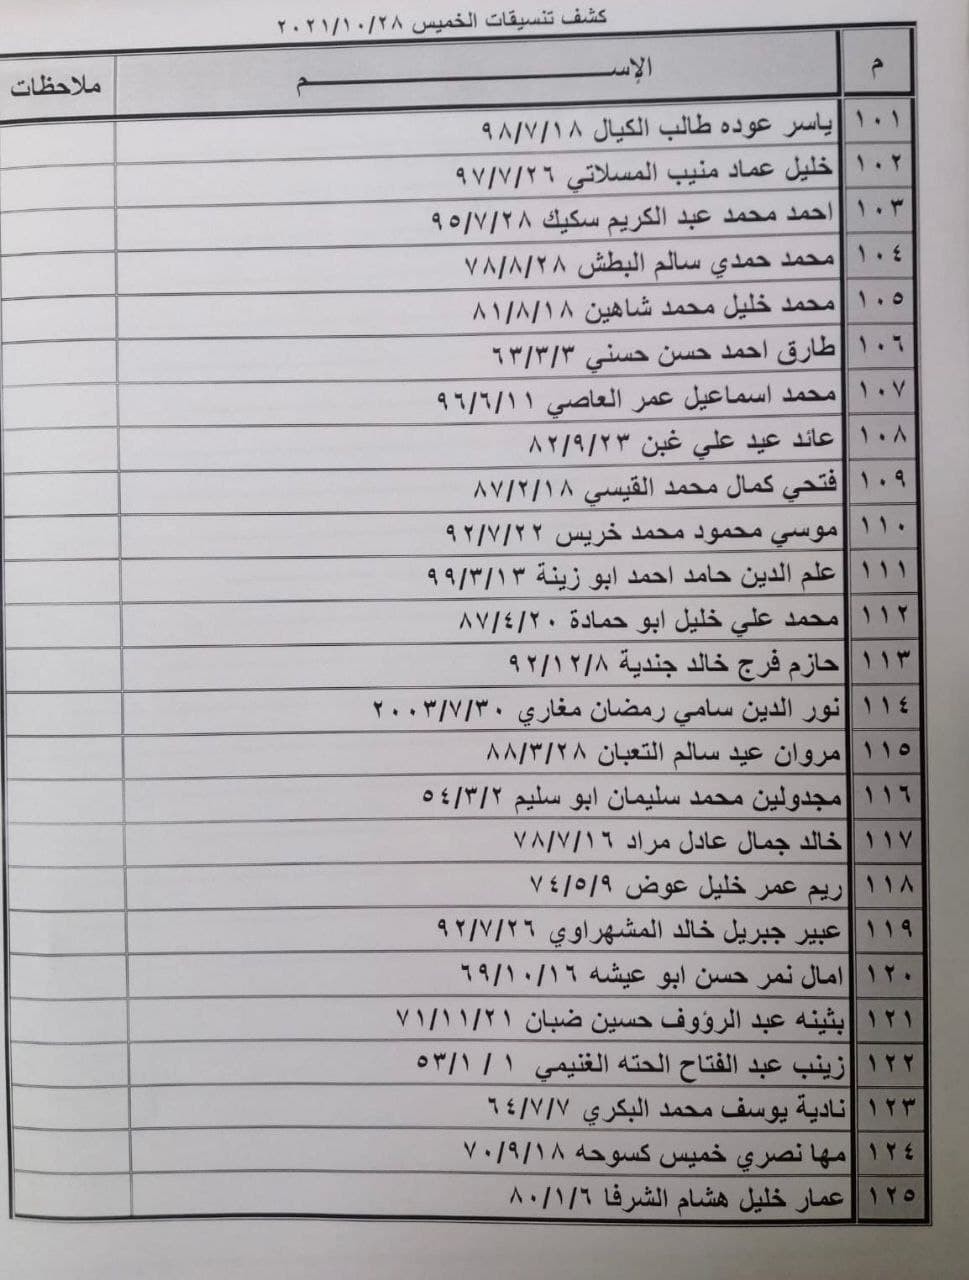 كشف تنسيقات الخميس ٢٠٢١/١٠/٢٨
م الإســـــــم ملاحظات
١٠١ ياسر عوده طالب الكيال ٩٨/٧/١٨
١٠٢ خليل عماد منيب المسلاتي ٩٧/٧/٢٦
١٠٣ احمد محمد عبد الكريم سكيك ٩٥/٧/٢٨
١٠٤ محمد حمدي سالم البطش ٧٨/٨/٢٨
١٠٥ محمد خليل محمد شاهين ٨١/٨/١٨
١٠٦ طارق احمد حسن حسني ٦٣/٣/٣
١٠٧ محمد اسماعيل عمر العاصي ٩٦/٦/١١
١٠٨ عائد عيد علي غبن ٨٢/٩/٢٣
١٠٩ فتحي كمال محمد القيسي ٨٧/٢/١٨
١١٠ موسي محمود محمد خريس ٩٢/٧/٢٢
١١١ علم الدين حامد احمد ابو زينة ٩٩/٣/١٣
١١٢ محمد علي خليل ابو حمادة ٨٧/٤/٢٠
١١٣ حازم فرج خالد جندية ٩٢/١٢/٨
١١٤ نور الدين سامي رمضان مغاري ٢٠٠٣/٧/٣٠
١١٥ مروان عيد سالم التعبان ٨٨/٣/٢٨
١١٦ مجدولين محمد سليمان ابو سليم ٥٤/٣/٢
١١٧ خالد جمال عادل مراد ٧٨/٧/١٦
١١٨ ريم عمر خليل عوض ٧٤/٥/٩
١١٩ عبير جبريل خالد المشهراوي ٩٢/٧/٢٦
١٢٠ امال نمر حسن ابو عيشه ٦٩/١٠/١٦
١٢١ بثينه عبد الرؤوف حسين ضبان ٧١/١١/٢١
١٢٢ زينب عبد الفتاح الحته الغنيمي ٥٣/١/ ١
١٢٣ نادية يوسف محمد البكري ٦٤/٧/٧
١٢٤ مها نصري خميس كسوحه ٧٠/٩/١٨
١٢٥ عمار خليل هشام الشرفا ٨٠/١/٦